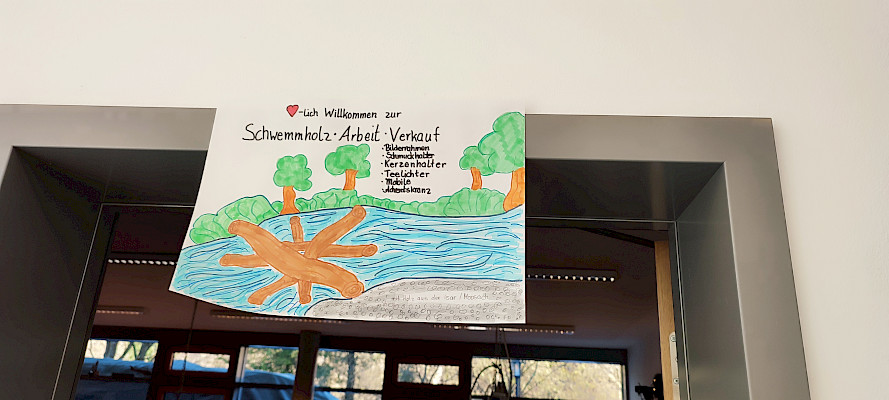 -lich Willkommen zur
Schwemmholz · Arbeit · Verkauf
· Bilderrahmen
· Schmuckhalter
· Kerzenhalter
· Teelichter
· Mobile
· Adventskranz
aus der Isar